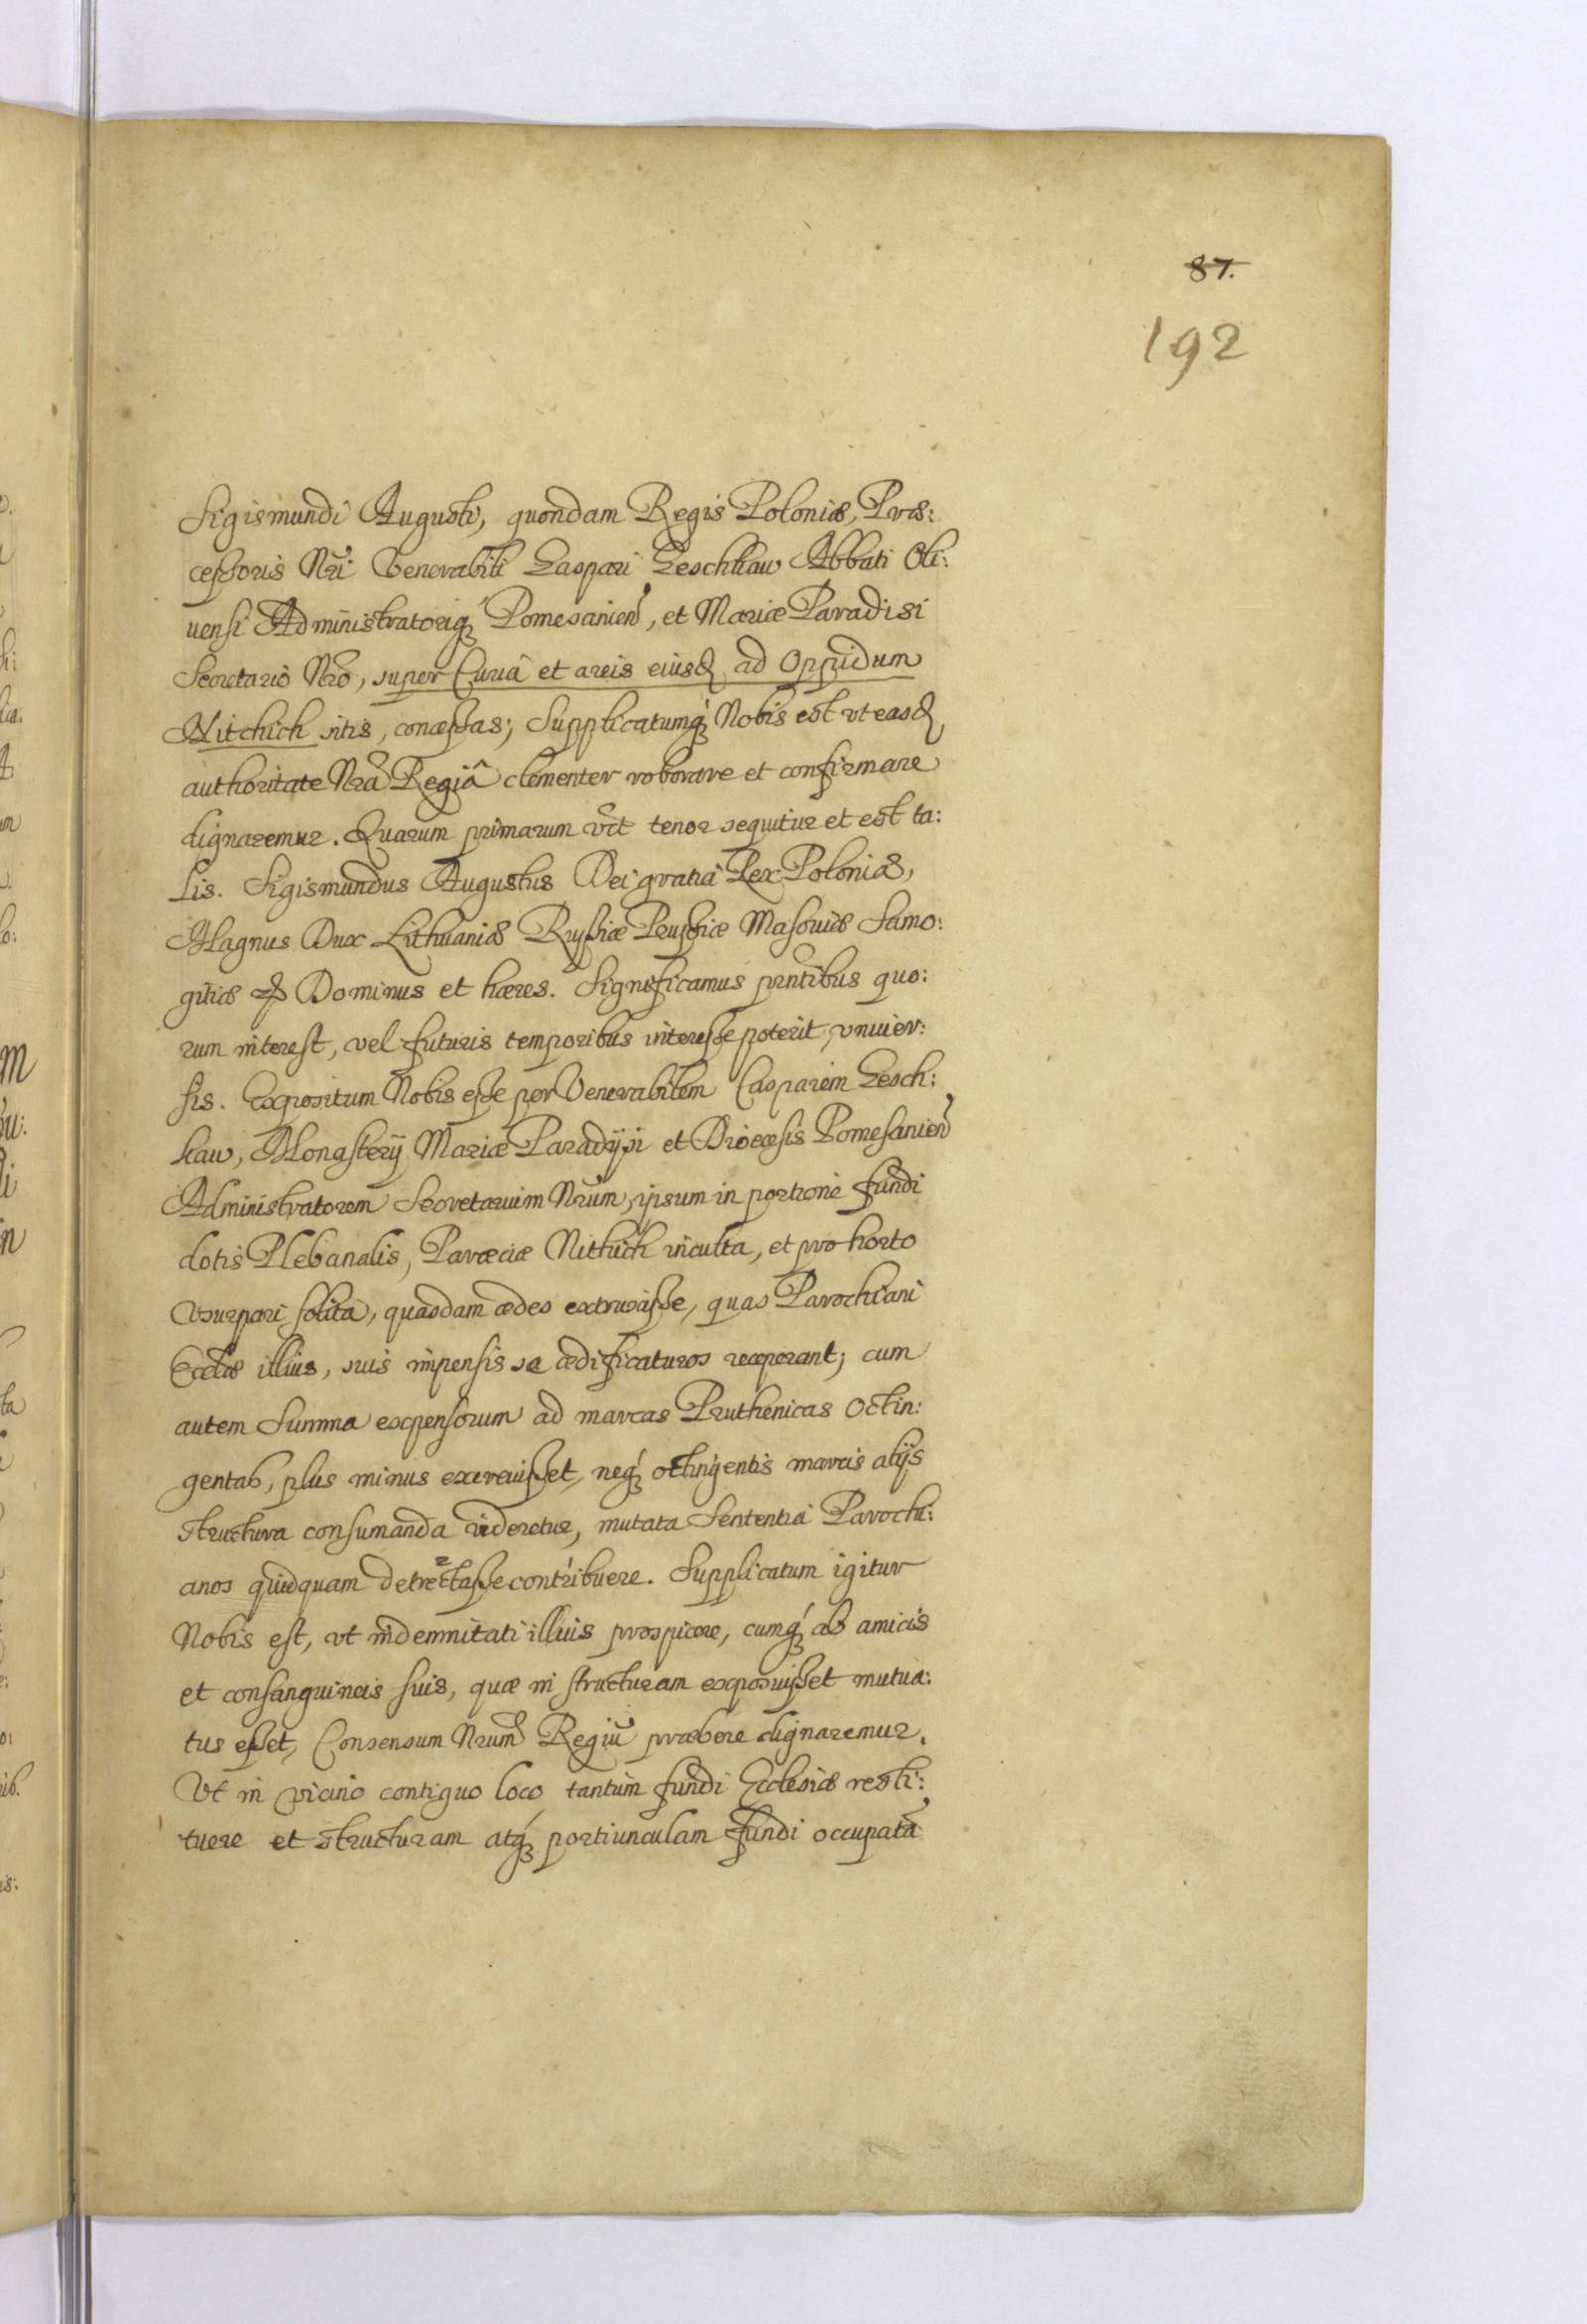 87.
192
Sigismundi Augusti, quondam Regis Poloniæ, Præ:
ceſsoris Nrĩ Venerabili Caspari Geschkaw Abbati Oli:
uensi Administratoriq́; Pomesanien̄, et Mariæ Paradisi
Secretario Nrõ, super Curiâ et areis eiusd. ad Oppidum
Nitchich sitis, conceſsas; Supplicatumq́; Nobis est vt easd.
authoritate Nrã Regiâ clementer roborare et confirmare
dignaremur. Quarum primarum vērt tenor sequitur et est ta:
lis. Sigismundus Augustus Dei gratia Rex Poloniæ,
Magnus Dux Lithuaniæ Ruſsiæ Pruſsiæ Masouiæ Samo:
gitiæ etc. Dominus et hæres. Significamus prntibus quo:
rum interest, vel futuris temporibus intereſse poterit, vniuer:
sis. Expositum Nobis eſse per Venerabilem Casparem Gesch:
kaw, Monasterij Mariæ Paradysi et Diœcesis Pomesanien̄
Administratorem Secretarium Nrũm, ipsum in portione fundi
dotis Plebanalis, Parœciæ Nithich inculta, et pro horto
vsurpari solita, quasdam ædes extruxiſse, quas Parochiani
Eccłiæ illius, suis impensis se ædificaturos receperant; cum
autem Summa expensorum ad marcas Pruthenicas Octin:
gentas, plus minus excreuiſset, neq́; octingentis marcis alijs
structura consumanda videretur, mutata Sententia Parochi:
anos quidquam detrectaſse contribuere. Supplicatum igitur
Nobis est, vt indemnitati illius prospicere, cumq́; ab amicis
et consanguineis suis, quæ in structuram exposuiſset mutua:
tus eſset, Consensum Nrũm Regiũ præbere dignaremur.
Vt in vicino contiguo loco tantum fundi Ecclesiæ resti:
tuere et structuram atq́; portiunculam fundi occupatã